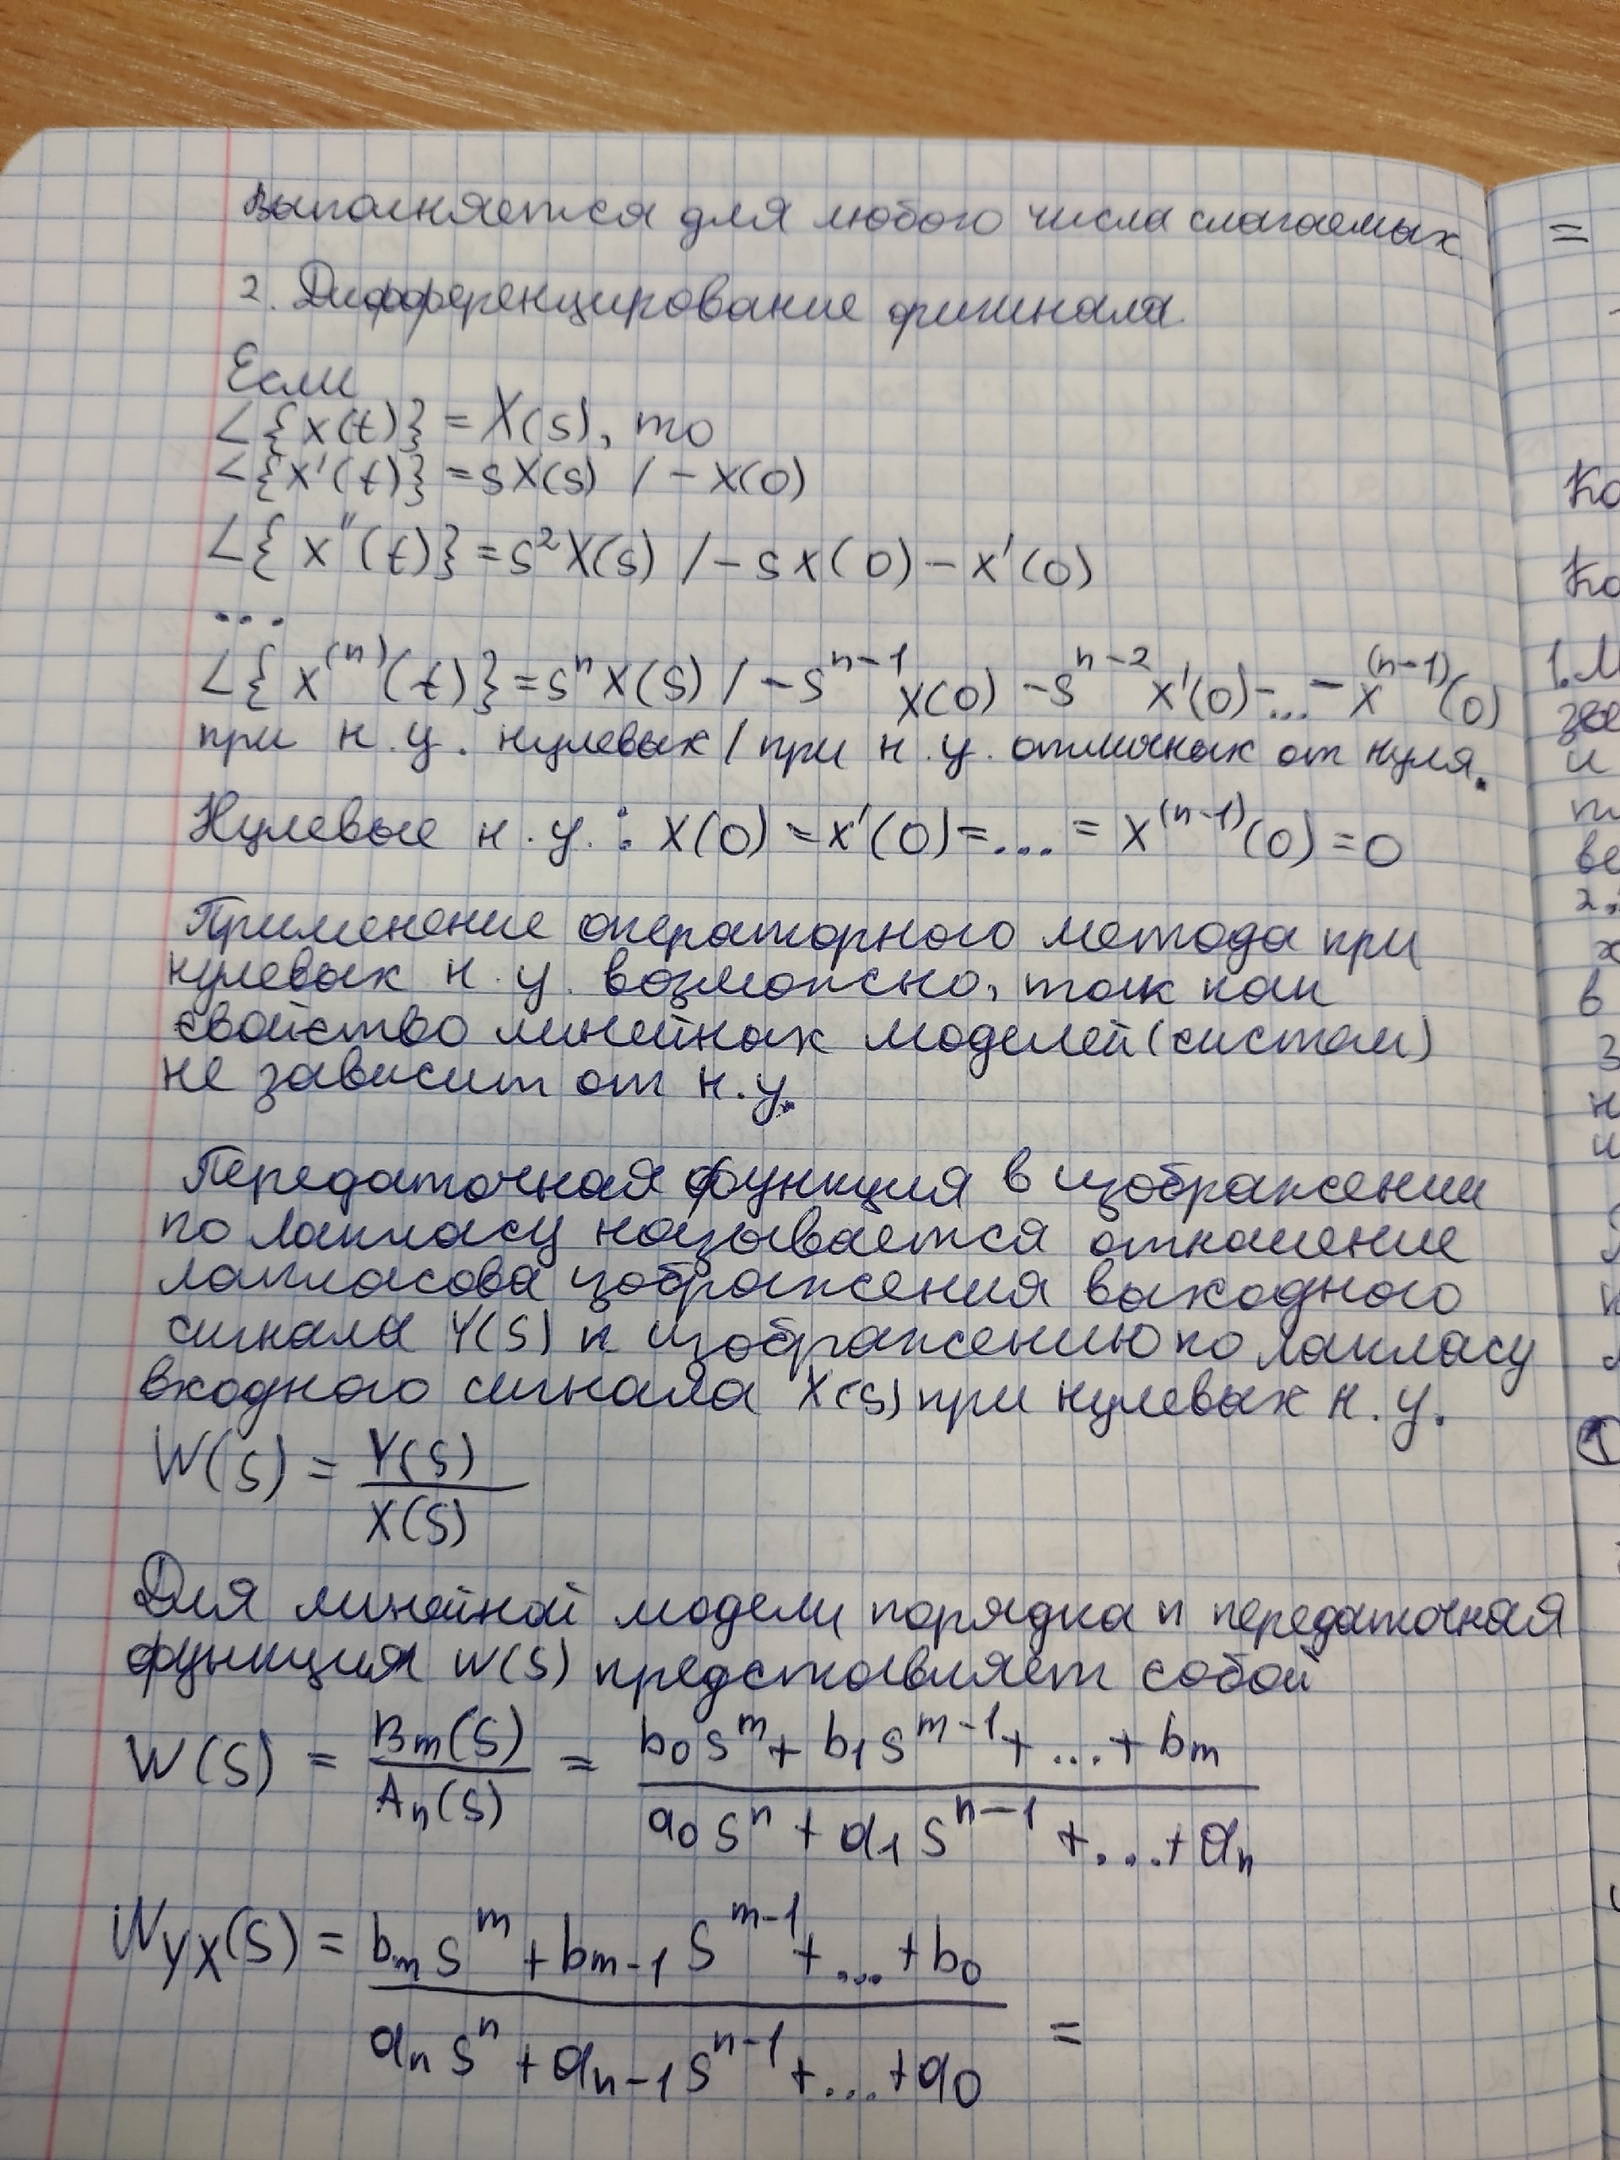 Выполняется для любого числа слагаемых
2. Дифференцирование оригинала.
Если
L{x(t)} = X(s), то
L{x'(t)} = sX(s) / - x(0)
L{x''(t)} = s²X(s) / - sx(0) - x'(0)
...
L{x^(n)(t)} = s^n X(s) / - s^(n-1) x(0) - s^(n-2) x'(0) - ... - x^(n-1)(0)
при н.у. нулевых / при н.у. отличных от нуля.
Нулевые н.у.: x(0) = x'(0) = ... = x^(n-1)(0) = 0
Применение операторного метода при
нулевых н.у. возможно, так как
свойство линейных моделей (систем)
не зависит от н.у.
Передаточная функция в изображении
по лапласу называется отношение
лапласова изображения выходного
сигнала Y(s) к изображению по лапласу
входного сигнала X(s) при нулевых н.у.
W(s) = Y(s) / X(s)
Для линейной модели порядка n передаточная
функция W(s) представляет собой
W(s) = Bm(s) / An(s) = (b0 s^m + b1 s^(m-1) + ... + bm) / (a0 s^n + a1 s^(n-1) + ... + an)
Wyx(s) = (bm s^m + bm-1 s^(m-1) + ... + b0) / (an s^n + an-1 s^(n-1) + ... + a0) =
=
1.
и
ве
2.
х
в
3
н
и